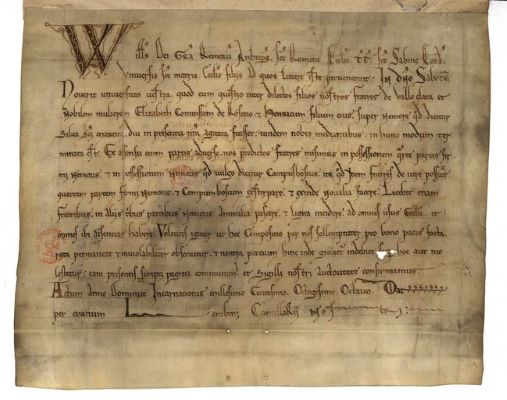 Willmus Dei Gra Remorum Archieps. sce Romane Ecclie tt sce Sabine Card.
Vniversis sce matris Ecclie filiis ad quos littere iste pervenerint. In Dno Salute.
Noverit universitas vestra, quod cum questio inter dilectos filios nostros fratres de valle clara et
Nobilem mulierem Elizabeth Comitissam de et filium eius, super nemore quod dicitur
Silva diu in presentia nra agitata fuisset, tandem nobis mediantibus in hunc modum ter
minata est. Ex assensu enim partis adverse nos predictos fratres misimus in possessionem quarte partis
nemoris, et in possessionem nemoris quod vulgo dicitur Campusbosus. ita quod ipsi fratres de iure possunt
quartam partem nemoris et Campumbosum et exinde novalia facere. Licebit etiam
fratribus in aliis tribus partibus nemoris Animalia pascere, et ligna incidere ad omnes usus Ecclie. et
omnes ibi aisentias habere. Volentes igitur ut hec Compositio per nos sollempniter pro bono pacis facta,
rata permaneat et inviolabiliter observetur, et neutra partium hinc inde gravetur indebite hoc aut mo
lestetur, eam presentis scripti pagina communimus, et Sigilli nostri Auctoritate confirmamus.
Actum Anno Dominice Incarnationis millesimo Centesimo. Octogesimo Octavo. Dat
per manum Cancellarii nostri